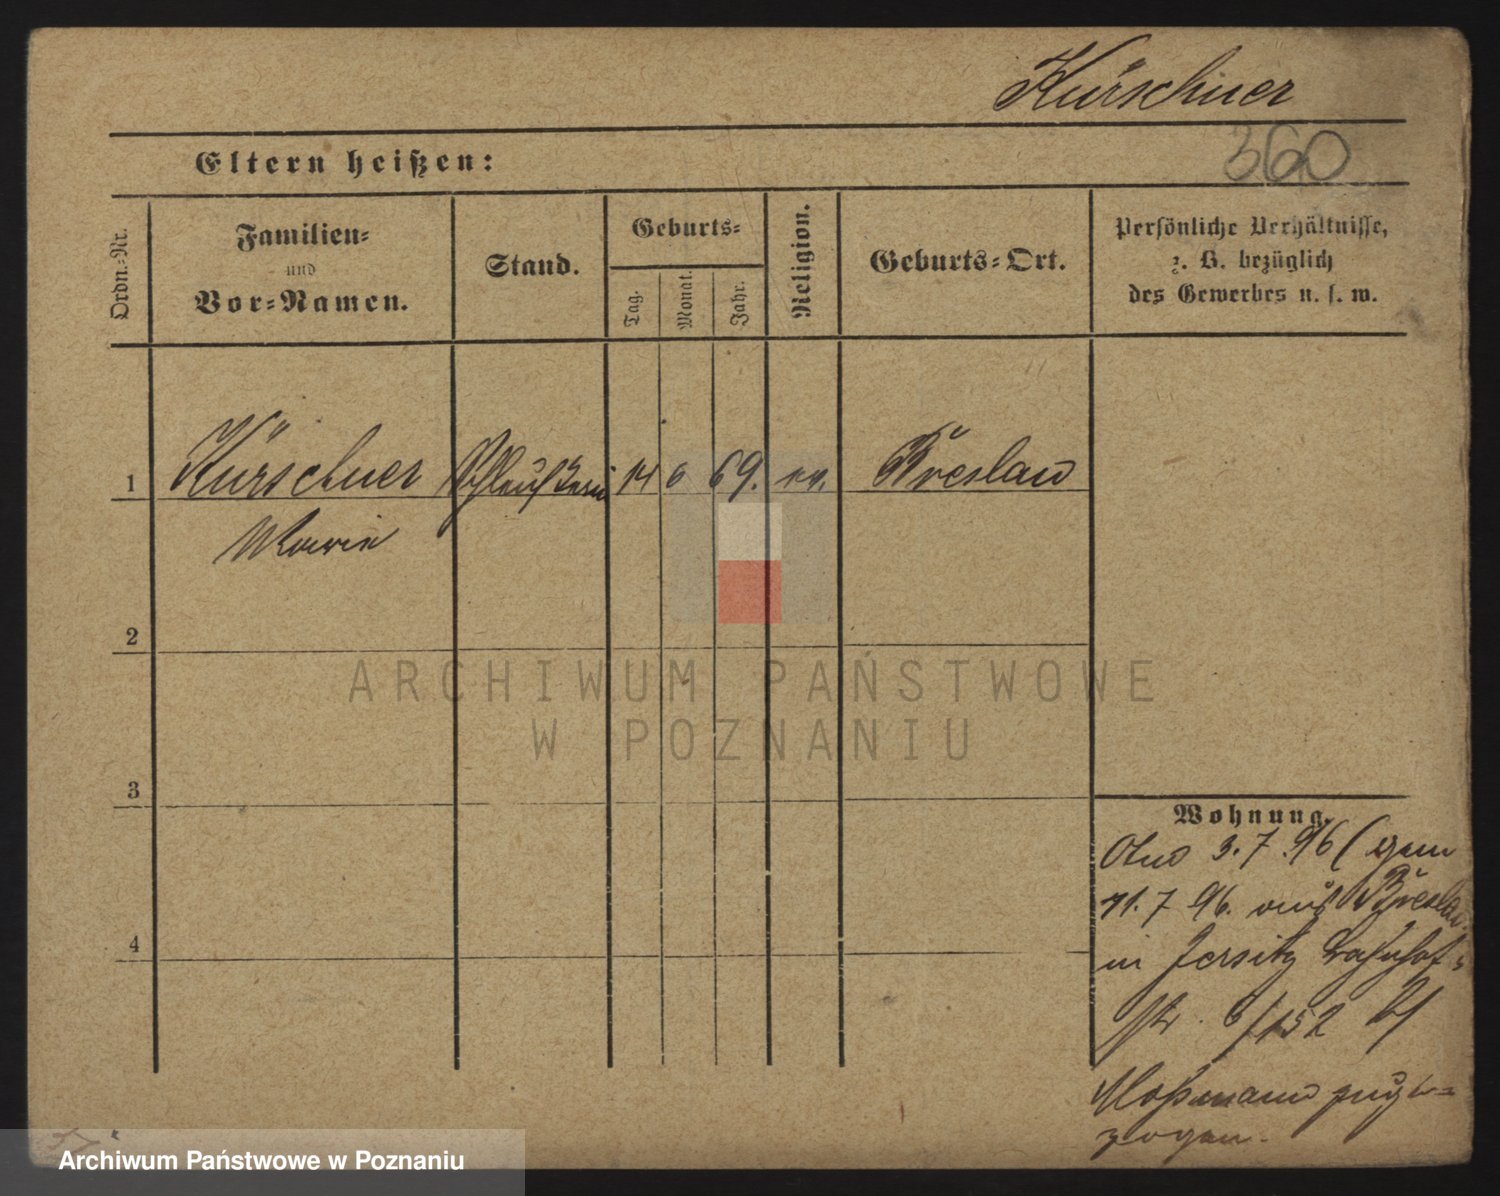 Kürschner
360
Eltern heißen:
Ordn.-Nr.
Familien-
und
Vor-Namen.
Stand.
Geburts-
Tag.
Monat.
Jahr.
Religion.
Geburts-Ort.
Persönliche Verhältnisse,
z. B. bezüglich
des Gewerbes u. s. w.
1 Kürschner 14 6 69. ev. Breslau
Marie
2
3
4
Wohnung.
3.7.96 (gem
11.7.96. aus Breslau
in Jersitz Bahnhof-
str. 6/152 bei
zuge-
zogen.
ARCHIWUM PAŃSTWOWE
W POZNANIU
Archiwum Państwowe w Poznaniu